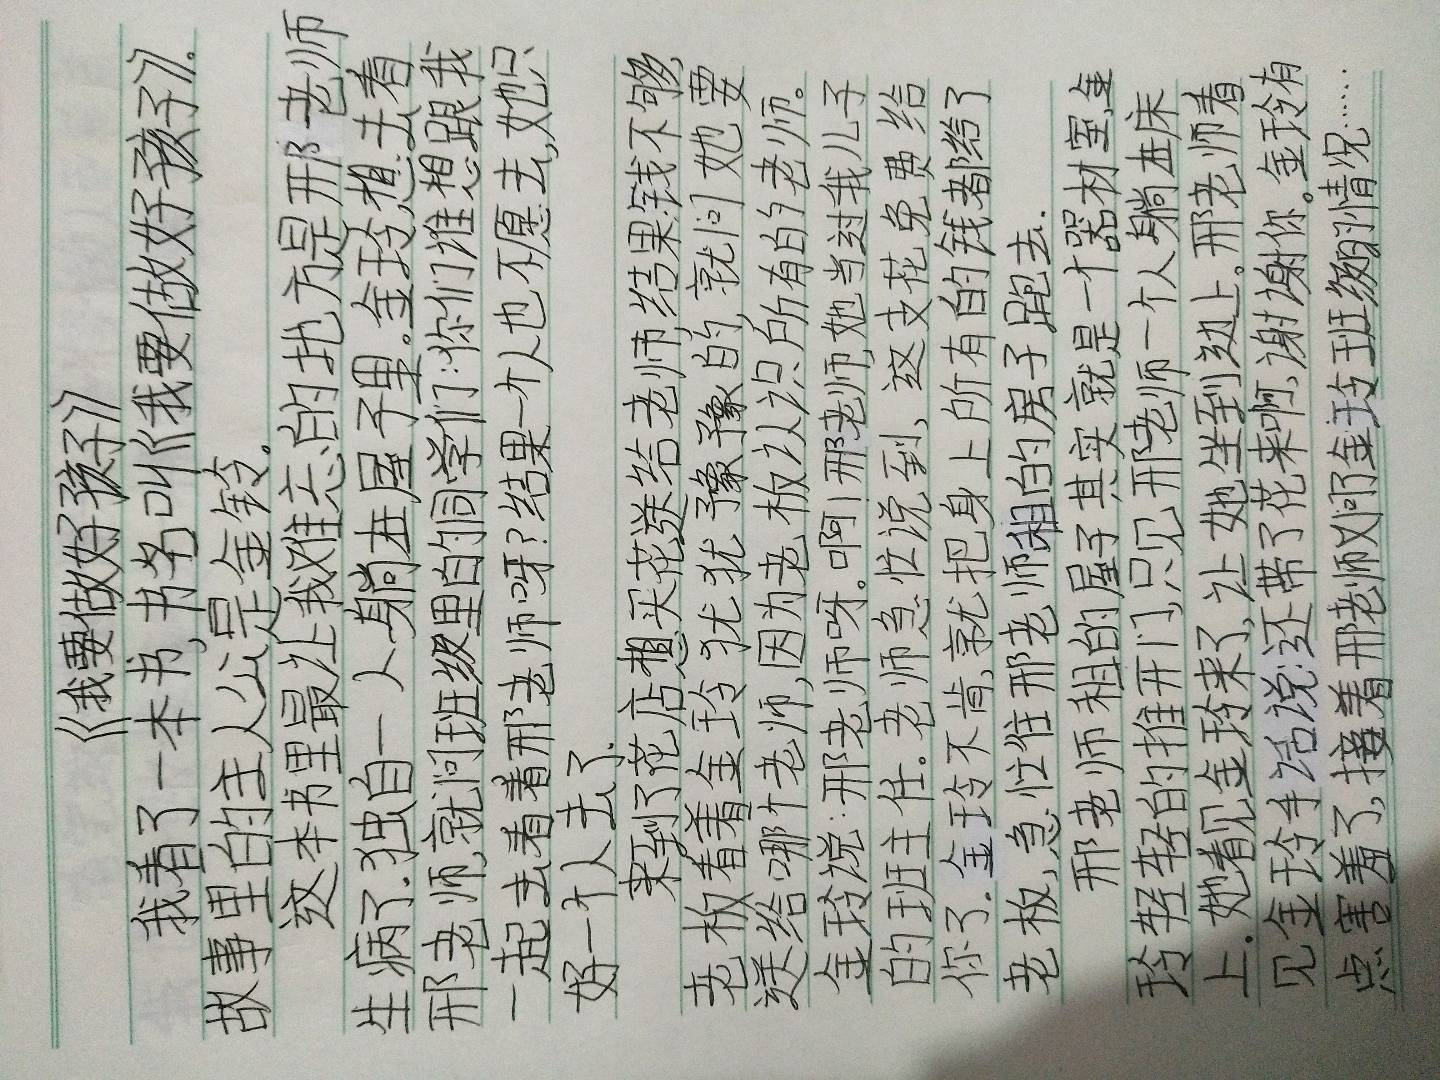 《我要做好孩子》
我看了一本书，书名叫《我要做好孩子》。
故事里的主人公是金铃。
这本书里最让我难忘的地方是邢老师
生病了.独自一人躺在屋子里。金玲想去看
邢老师,就问班级里的同学们:你们谁想跟我
一起去看看邢老师呀?结果一个人也不愿去,她只
好一个人去了.
来到了花店想买花送给老师结果钱不够,
老板看着金玲犹犹豫豫的,就问她要
送给哪个老师,因为老板认识所有的老师。
金玲说:邢老师呀。啊!邢老师她当过我儿子
的班主任.老师急忙说到,这支花免费给
你了.金玲不肯,就把身上所有的钱都给了
老板,急忙往邢老师租的房子跑去.
邢老师租的屋子其实就是一个器材室,金
玲轻轻的推开门,只见邢老师一个人躺在床
上.她看见金玲来了,让她坐到边上。邢老师看
见金玲手话说:还带了花来啊,谢谢你。金玲有
点害羞了,接着邢老师又问了金玲班级的情况……